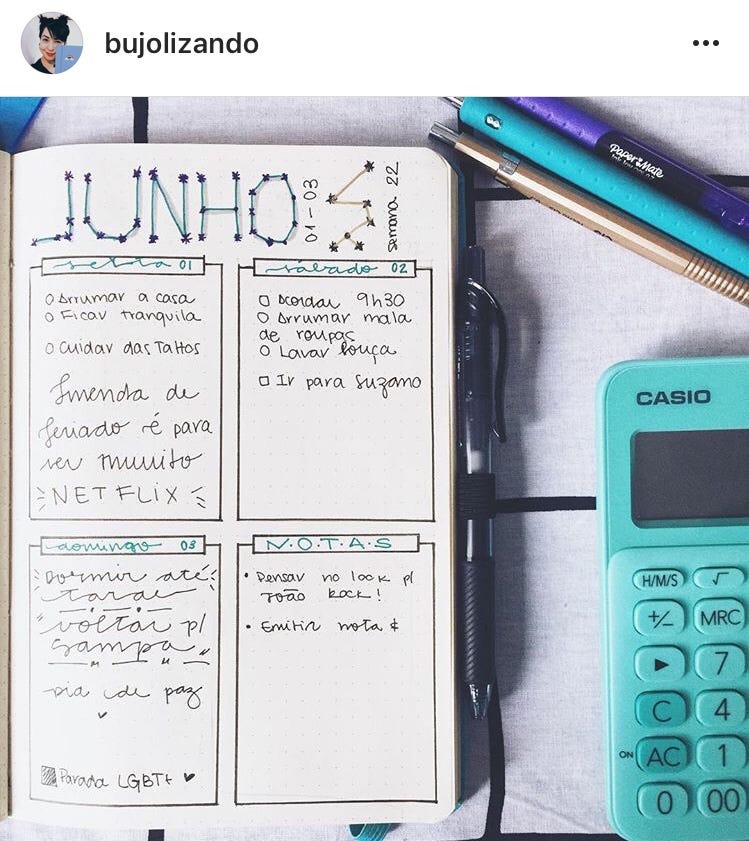 bujolizando
JUNHO
01-03
semana 22
sexta 01
Arrumar a casa
Ficar tranquila
Cuidar das Tattos
Emenda de
feriado é para
ver muuito
NETFLIX
sábado 02
Acordar 9h30
Arrumar mala
de roupas
Lavar louça
Ir para Suzano
domingo 03
Dormir até
tarde
voltar p/
sampa
dia de paz
Parada LGBT+
N·O·T·A·S
• Pensar no look p/
João Rock!
• Emitir nota $
PaperMate
CASIO
H/M/S √
+/− MRC
▶ 7
C 4
ON AC 1
0 00